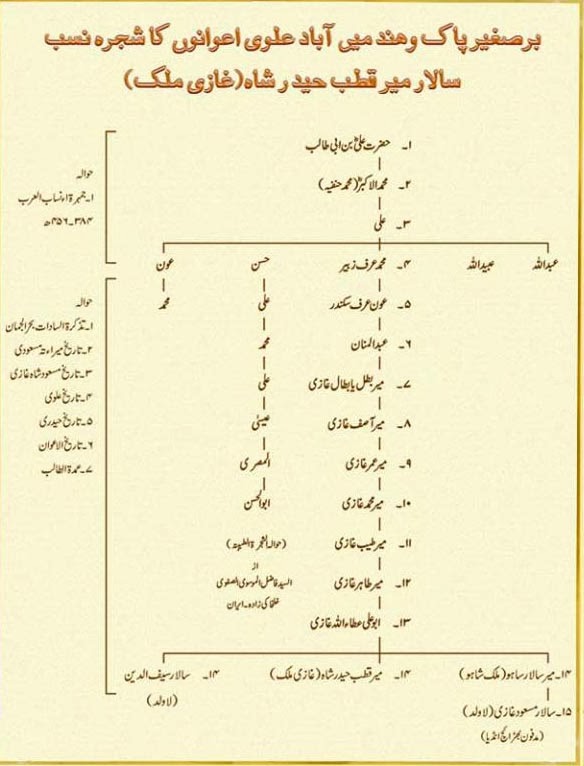 برصغیر پاک وھند میں آباد علوی اعوانوں کا شجرہ نسب
سالار میر قطب حیدر شاہ (غازی ملک)
۱۔ حضرت علیؓ بن ابی طالب
۲۔ محمد الاکبرؓ (محمد حنفیہ)
۳۔ علی
حوالہ
۱۔ جمہرۃ انساب العرب
۳۸۴۔۴۵۶ھ
عبداللہ عبیداللہ ۴۔ محمد عرف زبیر حسن عون
۵۔ عون عرف سکندر علی محمد
۶۔ عبدالمنان محمد
۷۔ میر بطل یا بطال غازی علی
۸۔ میر آصف غازی عیسیٰ
۹۔ میر عمر غازی المصری
۱۰۔ میر محمد غازی ابوالحسن
۱۱۔ میر طیب غازی (حوالہ الشجرۃ الطیبۃ)
از
۱۲۔ میر طاہر غازی السید فاضل الموسوی الصفوی
زادہ۔ ایران
۱۳۔ ابو علی عطاء اللہ غازی
حوالہ
۱۔ تذکرۃ السادات بحر الجمان
۲۔ تاریخ میراۃ مسعودی
۳۔ تاریخ مسعود شاہ غازی
۴۔ تاریخ علوی
۵۔ تاریخ حیدری
۶۔ تاریخ الاعوان
۷۔ عمدۃ الطالب
۱۴۔ میر سالار ساہو (ملک شاہو) ۱۴۔ میر قطب حیدر شاہ (غازی ملک) ۱۴۔ سالار سیف الدین
(لاولد)
۱۵۔ سالار مسعود غازی (لاولد)
(مدفون بھڑائچ انڈیا)